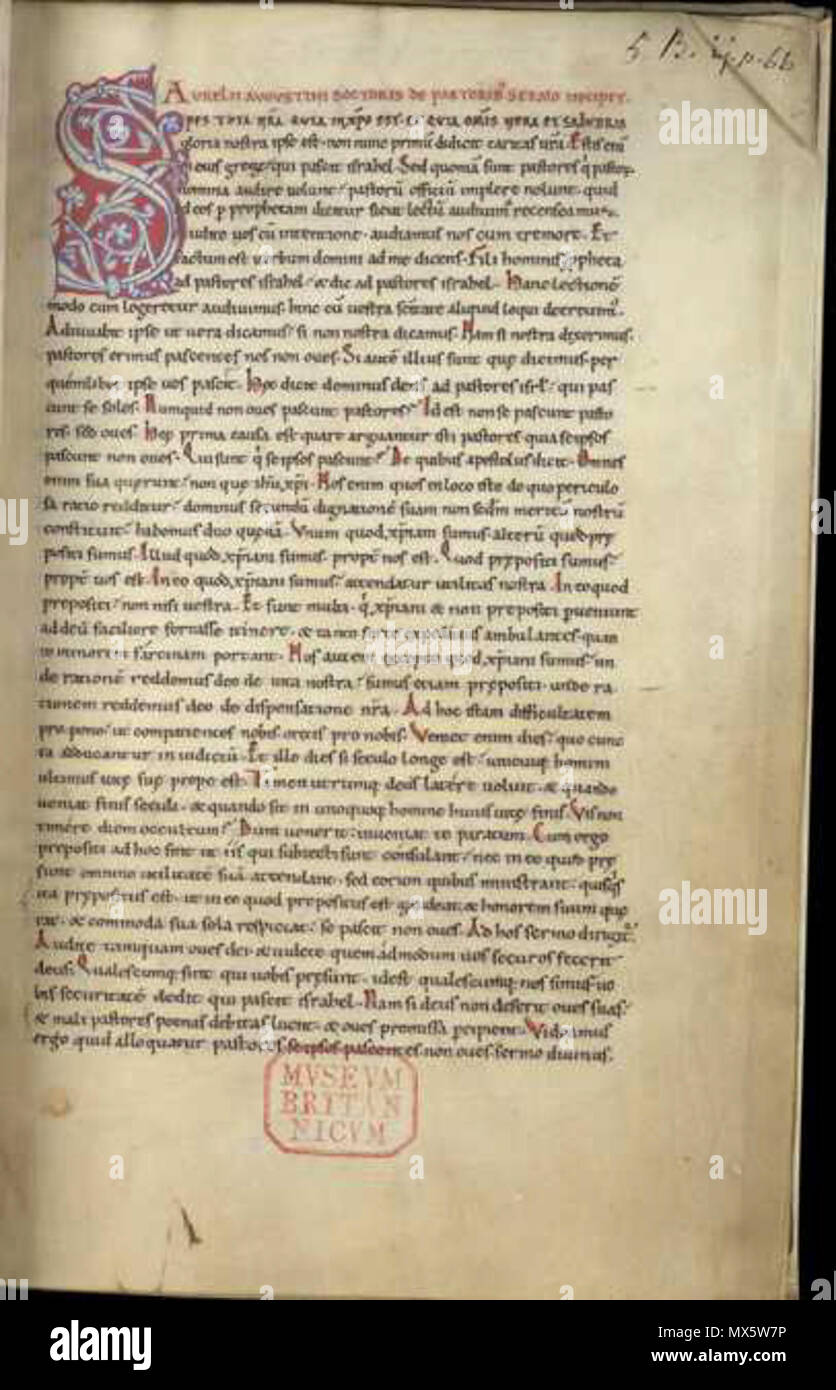 5 B. iij. p. 66
AVRELII AVGVSTINI DOCTORIS DE PASTORIB' SERMO INCIPIT.
SPES TOTA NRA QVIA IN XPO EST. ET QVIA OMIS VERA ET SALVBRIS
gloria nostra ipse est. non nunc primu didicit caritas ura. Estis eni
in eius grege. qui pascit israhel. Sed quonia sunt pastores q pastor
nomina audire uolunt. pastoru officiu implere nolunt. quid
ad eos p prophetam dicatur sicut lectu audiuim' recenseamus.
Audite uos cu intentione. audiamus nos cum tremore. Et
factum est uerbum domini ad me dicens. Fili hominis ppheta
ad pastores israhel. & dic ad pastores israhel. Hanc lectione
modo cum legeretur audiuimus. hinc cu uestra scitate aliquid loqui decreuim'.
Adiuuabit ipse ut uera dicamus. si non nostra dicamus. Nam si nostra dixerimus.
pastores erimus pascentes nos non oues. Si aute illius sunt que dicimus. per
quemlibet ipse uos pascit. Hec dicit dominus deus ad pastores isrl. qui pas
cunt se solos. Numquid non oues pascunt pastores? Id est non se pascunt pasto
res. sed oues. Hec prima causa est quare arguantur isti pastores quia seipsos
pascunt non oues. Qui sunt q seipsos pascunt? De quibus apostolus dicit. Omnes
enim sua querunt. non que ihu xpi. Nos enim quos in loco iste de quo periculo
sa ratio redditur. dominus secundu dignatione suam non sedm meritu nostru
constituit. habemus duo queda. Vnum quod xpiani sumus. alteru quod pre
positi sumus. Illud quod xpiani sumus. propt nos est. Quod prepositi sumus.
propt uos est. In eo quod xpiani sumus. attendatur utilitas nostra. In eo quod
prepositi. non nisi uestra. Et sunt multi. q xpiani & non prepositi pueniunt
ad deu faciliore fortasse itinere. & tanto fortasse expeditius ambulantes. quan
to minorem sarcinam portant. Nos autem excepto quod xpiani sumus. un
de ratione reddemus deo de uita nostra. sumus etiam prepositi. unde ra
tionem reddemus deo de dispensatione nra. Ad hoc istam difficultatem
propono. ut compatientes nobis. oretis pro nobis. Veniet enim dies. quo cunc
ta adducantur in iudiciu. Et ille dies si seculo longe est. unicuiq homini
ultimus uite sue prope est. Tamen utrumq deus latere uoluit. & quando
ueniat finis seculi. & quando sit in unoquoq homine huius uite finis. Vis non
timere diem occultum? Dum uenerit. inueniat te paratum. Cum ergo
prepositi ad hoc sint ut iis qui subiecti sunt consulant. nec in eo quod pre
sunt omnino utilitate sua attendant. sed eorum quibus ministrant. quisq's
ita prepositus est. ut in eo quod prepositus est gaudeat. & honorem suum que
rat. & commoda sua sola respiciat. se pascit non oues. Ad hos sermo dirigit'.
Audite tamquam oues dei. & uidete quem ad modum uos securos fecerit
deus. Qualescumq sint qui uobis presunt. id est qualescumq nos simus. uo
bis securitate dedit qui pascit israhel. Nam si deus non deserit oues suas.
& mali pastores poenas debitas luent. & oues promissa pcipient. Videamus
ergo quid alloquatur pastores seipsos pascentes non oues. sermo diuinus.
MVSEVM
BRITAN
NICVM
alamy
Image ID: MX5W7P
www.alamy.com